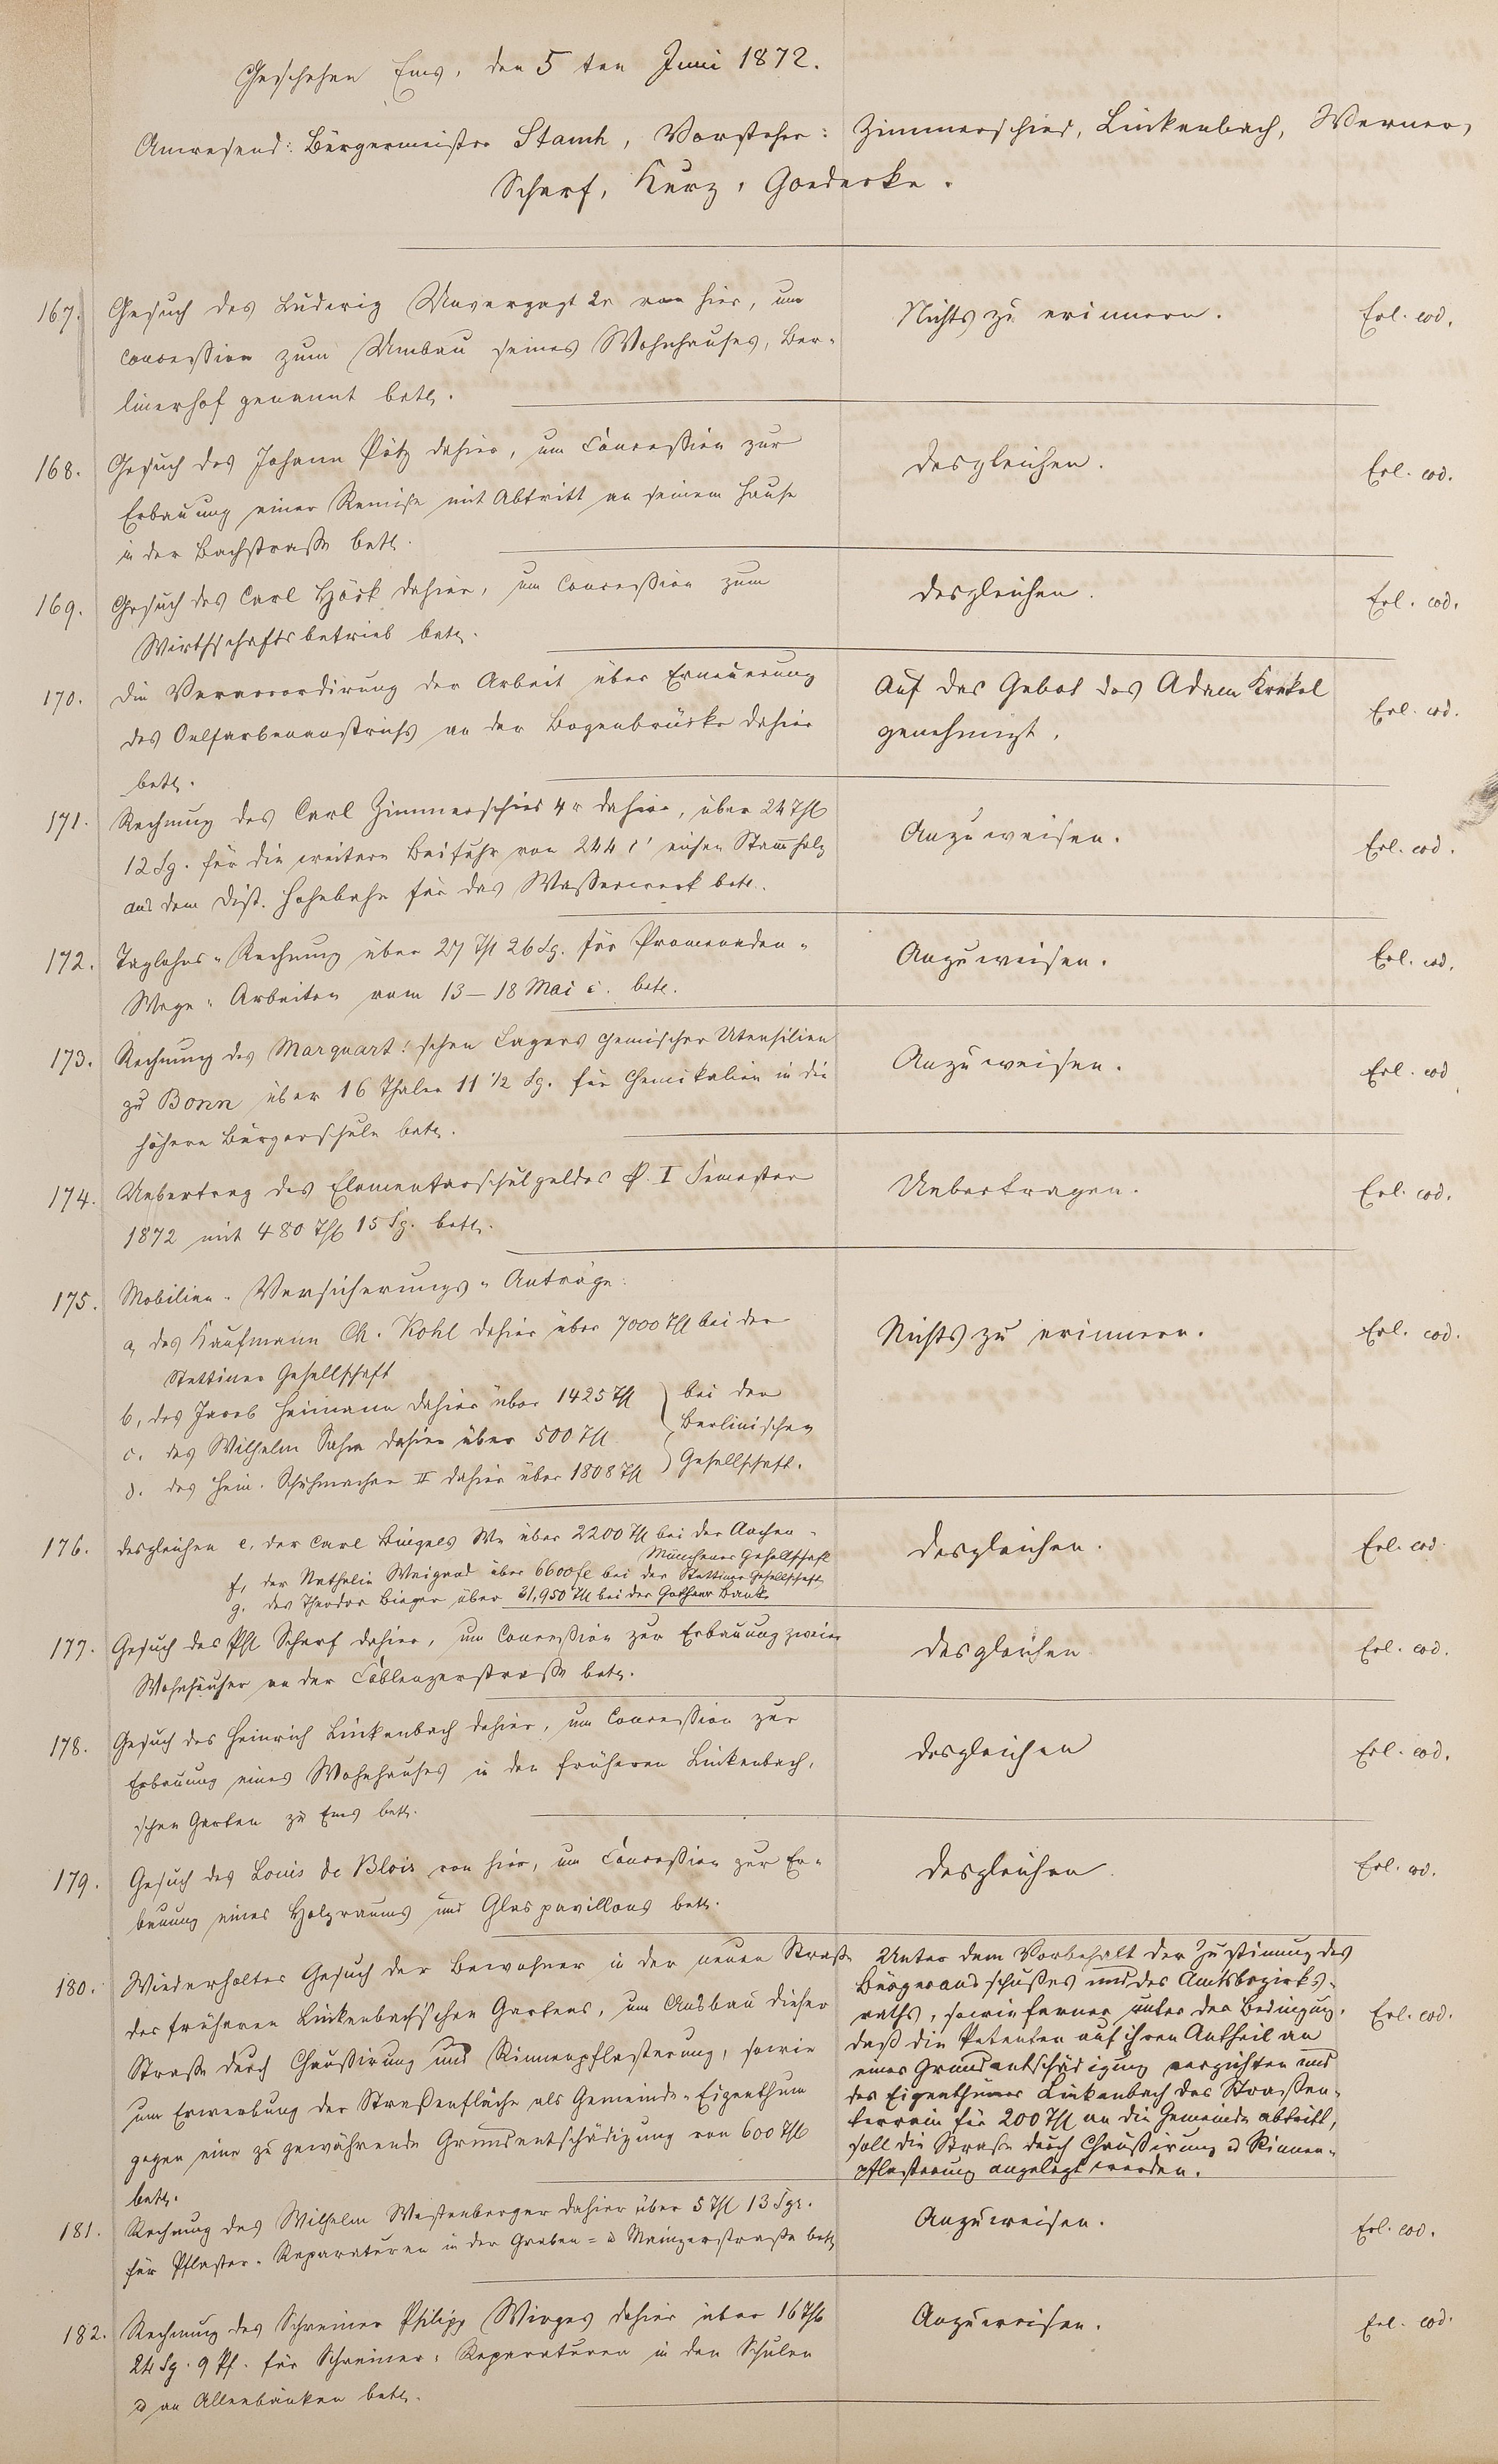 Geschehen Ems, den 5 ten Juni 1872.
Anwesend: Bürgermeister Stamh, Vorsteher: Zimmerschied, Linkenbach, Werner,
Scharf, Kurz, Goedecke.
167. Gesuch des Ludwig Unverzagt 2r von hier, um
Concession zum Umbau seines Wohnhauses, Ber-
linerhof genannt betr.
Nichts zu erinnern.
Erl. eod.
168. Gesuch des Johann Pötz dahier, um Concession zur
Erbauung einer Remise mit Abtritt an seinem Hause
in der Bachstraße betr.
desgleichen.
Erl. eod.
169. Gesuch des Carl Höck dahier, um Concession zum
Wirthschaftsbetrieb betr.
desgleichen.
Erl. eod.
170. Die Veraccordirung der Arbeit über Erneuerung
des Oelfarbenanstrichs an der Bogenbrücke dahier
betr.
Auf das Gebot des Adam Krekel
genehmigt.
Erl. eod.
171. Rechnung des Carl Zimmerschied 4r dahier, über 24 Thl
12 Sg. für die weitere Beifuhr von 244 c' eichen Stammholz
aus dem Dist. Hohebahn für das Wasserwerk betr.
Anzuweisen.
Erl. eod.
172. Taglohns-Rechnung über 27 Thl 26 Sg. für Promenaden-
Wege-Arbeiten vom 13-18 Mai c. betr.
Anzuweisen.
Erl. eod.
173. Rechnung des Marquart'schen Lagers chemischer Utensilien
zu Bonn über 16 Thaler 11 1/2 Sg. für Chemikalien in die
höhere Bürgerschule betr.
Anzuweisen.
Erl. eod
174. Uebertrag des Elementarschulgeldes p. I Semester
1872 mit 480 Thl 15 Sg. betr.
Uebertragen.
Erl. eod.
175. Mobilien-Versicherungs-Anträge:
a, des Kaufmann Ch. Kohl dahier über 7000 Thl bei der
Stettiner Gesellschaft
b, des Jacob Heimann dahier über 1425 Thl bei der
c. des Wilhelm Sahm dahier über 500 Thl Berlinischen
d. des Hein. Schuhmacher II dahier über 1808 Thl Gesellschaft.
Nichts zu erinnern.
Erl. eod.
176. desgleichen e, der Carl Bingels We über 2200 Thl bei der Aachen-
Münchener Gesellschaft
f, der Nathalie Weigand über 6600 fl bei der Stettiner Gesellschaft
g. des Theodor Bieger über 31,950 Thl bei der Gothaer Bank
desgleichen.
Erl. eod.
177. Gesuch des Phl Scharf dahier, um Concession zur Erbauung zweier
Wohnhäuser an der Coblenzerstraße betr.
desgleichen
Erl. eod.
178. Gesuch des Heinrich Linkenbach dahier, um Concession zur
Erbauung eines Wohnhauses in den früheren Linkenbach'
schen Garten zu Ems betr.
desgleichen
Erl. eod.
179. Gesuch des Louis de Blois von hier, um Concession zur Er-
bauung eines Holzraums und Glaspavillons betr.
desgleichen.
Erl. eod.
180. Wiederholtes Gesuch der Bewohner in der neuen Straße
des früheren Linkenbach'schen Gartens, um Ausbau dieser
Straße durch Chaußirung und Rinnenpflasterung, sowie
um Erwerbung der Straßenfläche als Gemeinde-Eigenthum
gegen eine zu gewährende Grundentschädigung von 600 Thl
betr.
Unter dem Vorbehalt der Zustimung des
Bürgerausschußes und des Amtsbezirks-
raths, sowie ferner unter der Bedingung,
daß die Petenten auf ihren Antheil an
einer Grundentschädigung verzichten und
der Eigenthümer Linkenbach das Straßen-
terrain für 200 Thl an die Gemeinde abtritt,
soll die Straße durch Chaußirung u Rinnen-
pflasterung angelegt werden.
Erl. eod.
181. Rechnung des Wilhelm Westenberger dahier über 5 Thl 13 Sgr.
für Pflaster-Reparaturen in der Graben- u Mainzerstraße betr
Anzuweisen.
Erl. eod.
182. Rechnung des Schreiner Philipp Wirges dahier über 16 Thl
24 Sg. 9 Pf. für Schreiner-Reparaturen in den Schulen
u an Alleebänken betr.
Anzuweisen.
Erl. eod.